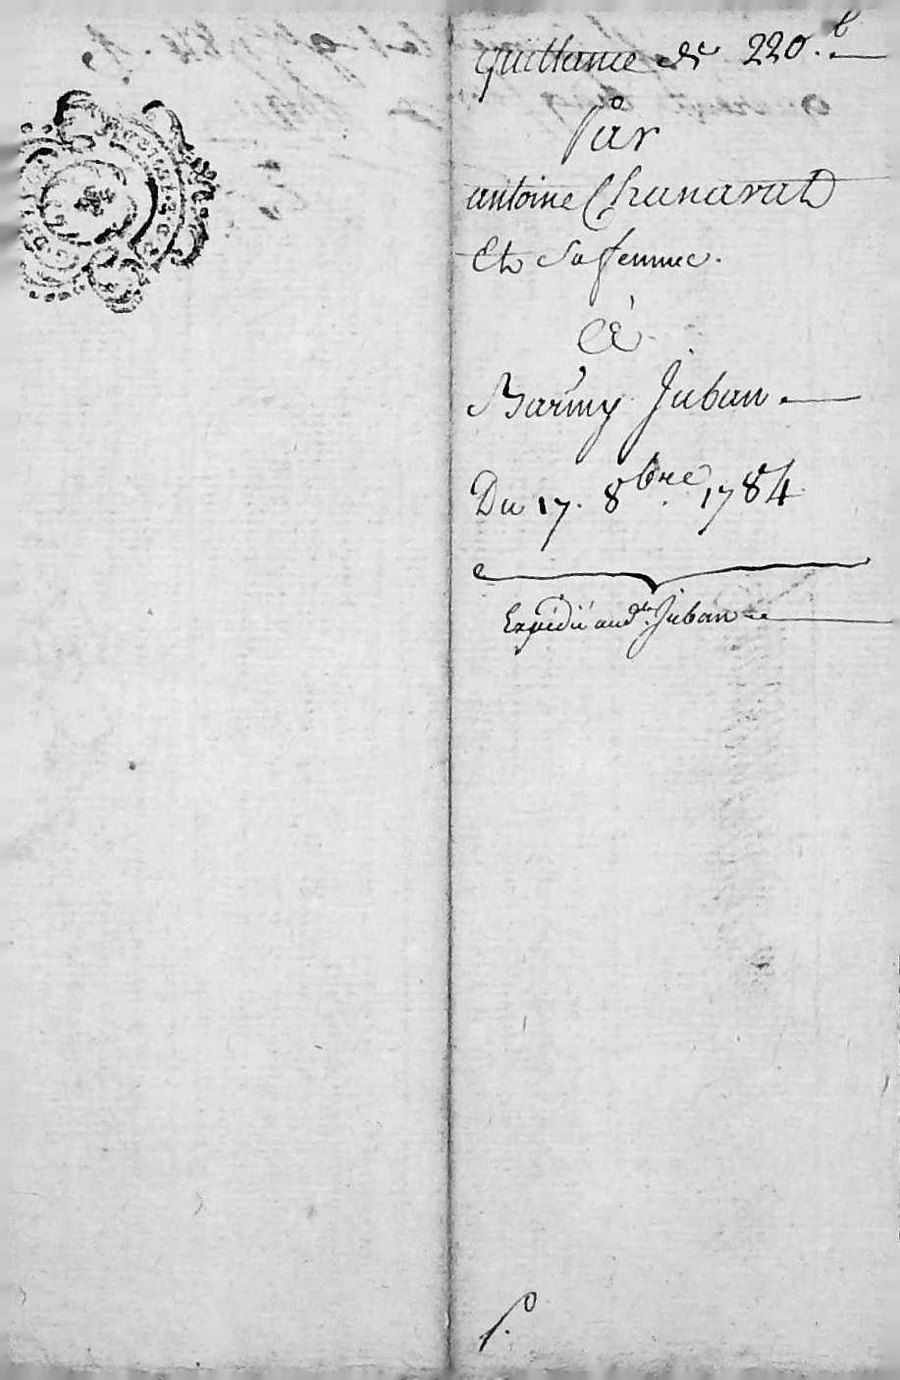 quittance de 220.ᵗ
Par
antoine Chanavat
Et Sa femme.
à
Barmy Juban.
Du 17. 8bre 1784
Expedié aud.t Juban